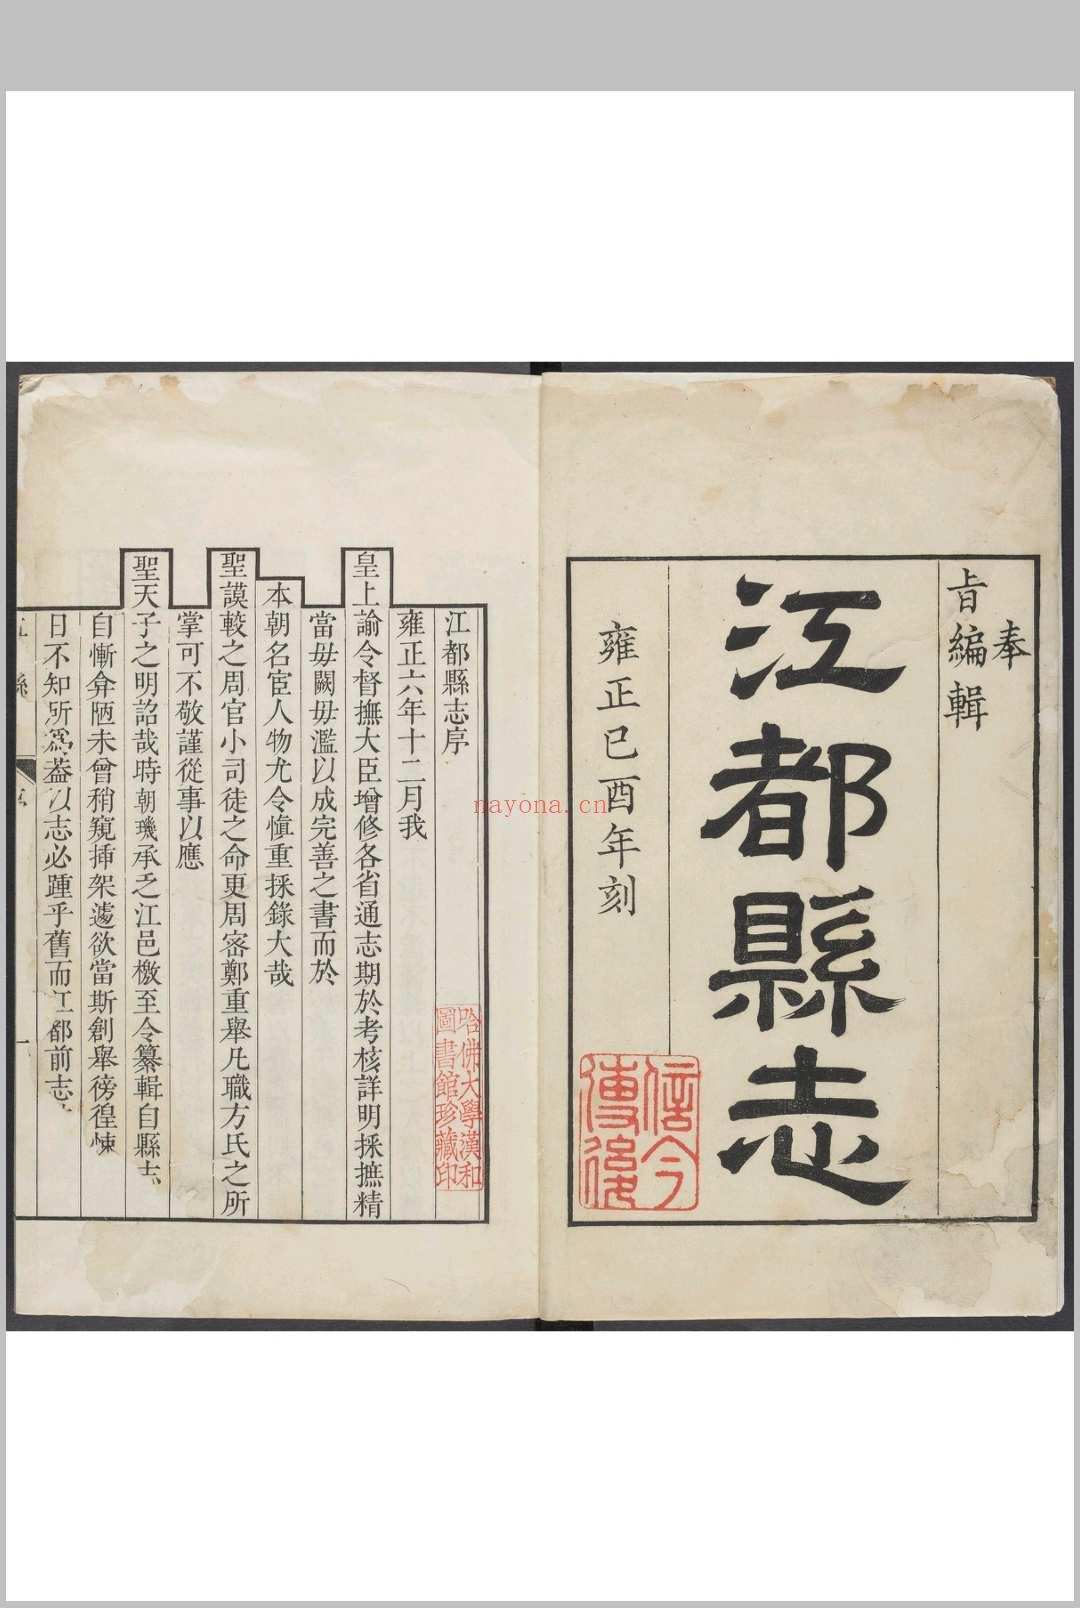 奉
旨編輯
江都縣志
雍正己酉年刻
信今
傳後
江都縣志序
哈佛大學漢和
圖書館珍藏印
雍正六年十二月我
皇上諭令督撫大臣增修各省通志期於考核詳明採摭精
當毋闕毋濫以成完善之書而於
本朝名宦人物尤令愼重採錄大哉
聖謨較之周官小司徒之命更周密鄭重舉凡職方氏之所
掌可不敬謹從事以應
聖天子之明詔哉時朝璣承乏江邑檄至令纂輯自縣志
自慚弇陋未曾稍窺揷架遽欲當斯創舉徬徨悚
日不知所爲葢以志必踵乎舊而江都前志
nayona.cn